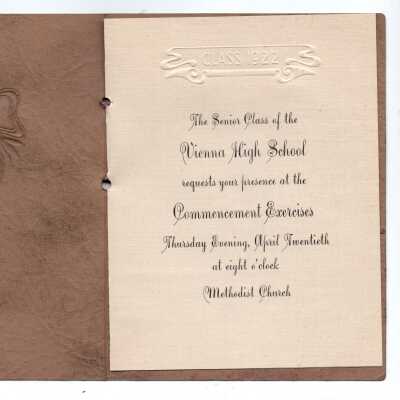 CLASS 1922
The Senior Class of the
Vienna High School
requests your presence at the
Commencement Exercises
Thursday Evening, April Twentieth
at eight o'clock
Methodist Church